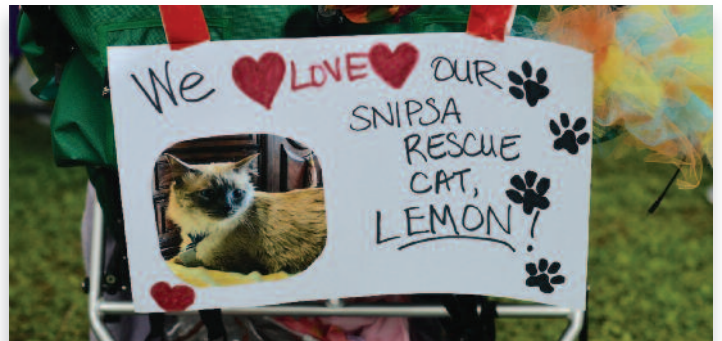 We LOVE OUR
SNIPSA
RESCUE
CAT,
LEMON!